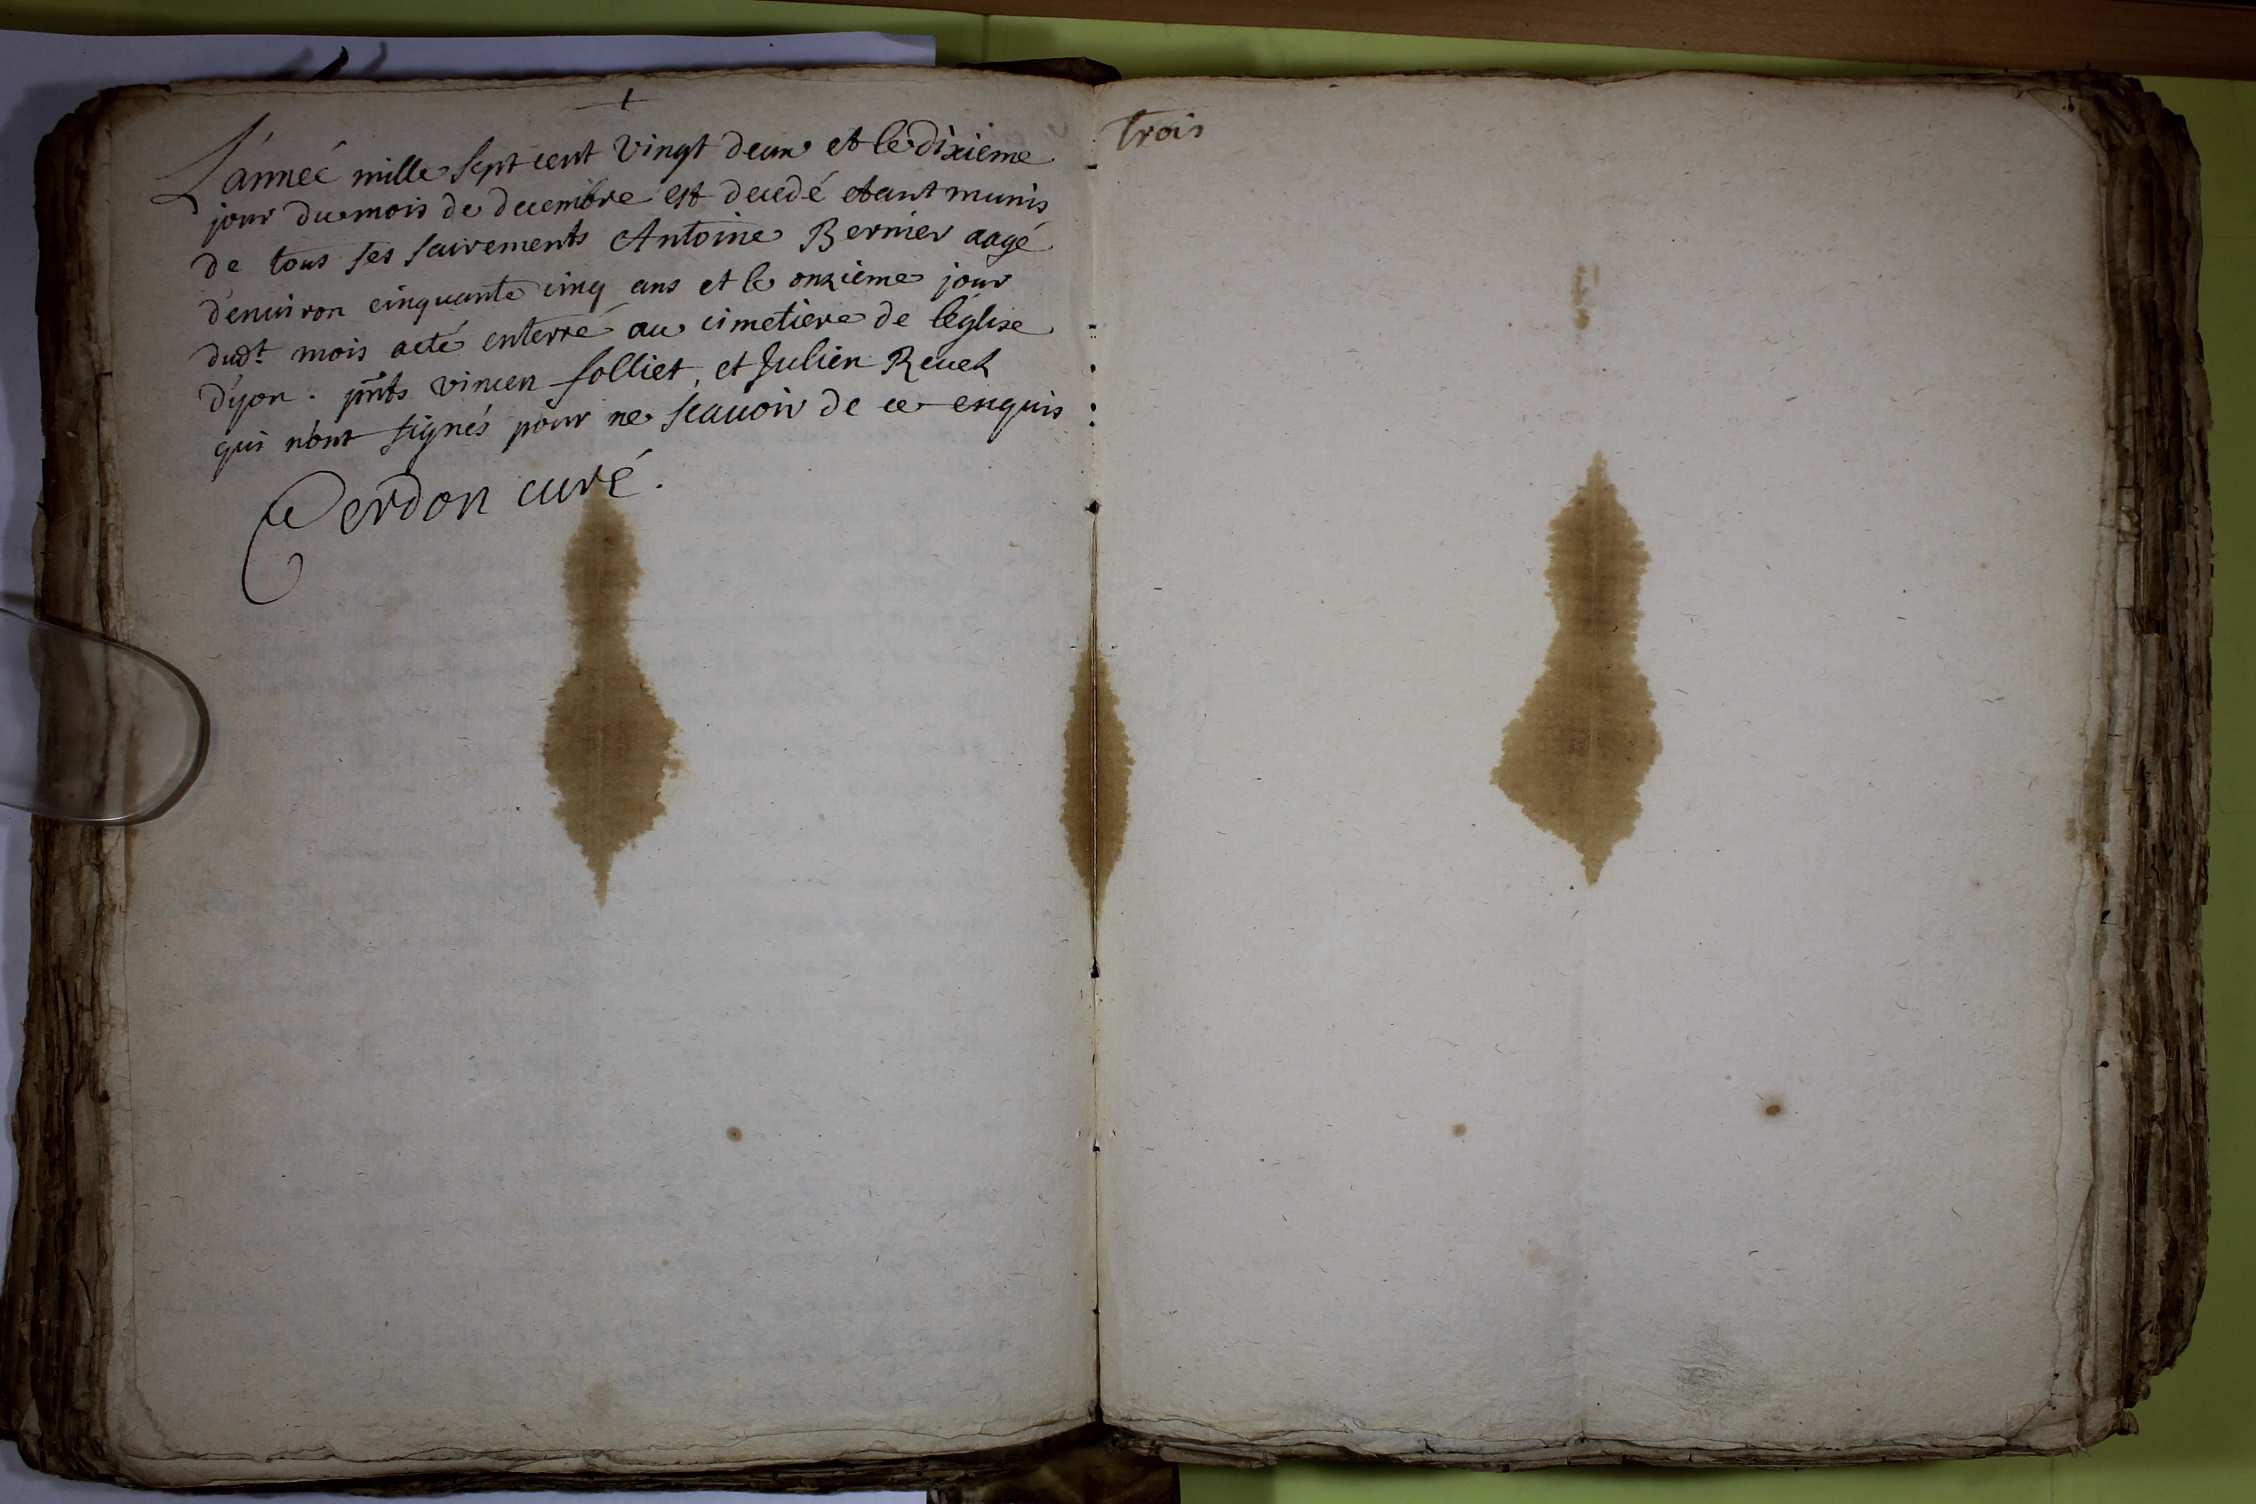 +
L'année mille sept cent vingt deux et le dixieme
jour du mois de decembre est decedé etant munis
de tous ses sacrements Antoine Bernier aagé
d'environ cinquante cinq ans et le onzieme jour
dudt mois a eté enterré au cimetiere de l'eglise
d'yon. pnts vincen folliet, et Julien Revel
qui n'ont signés pour ne scavoir de ce enquis
Cerdon curé.
Trois